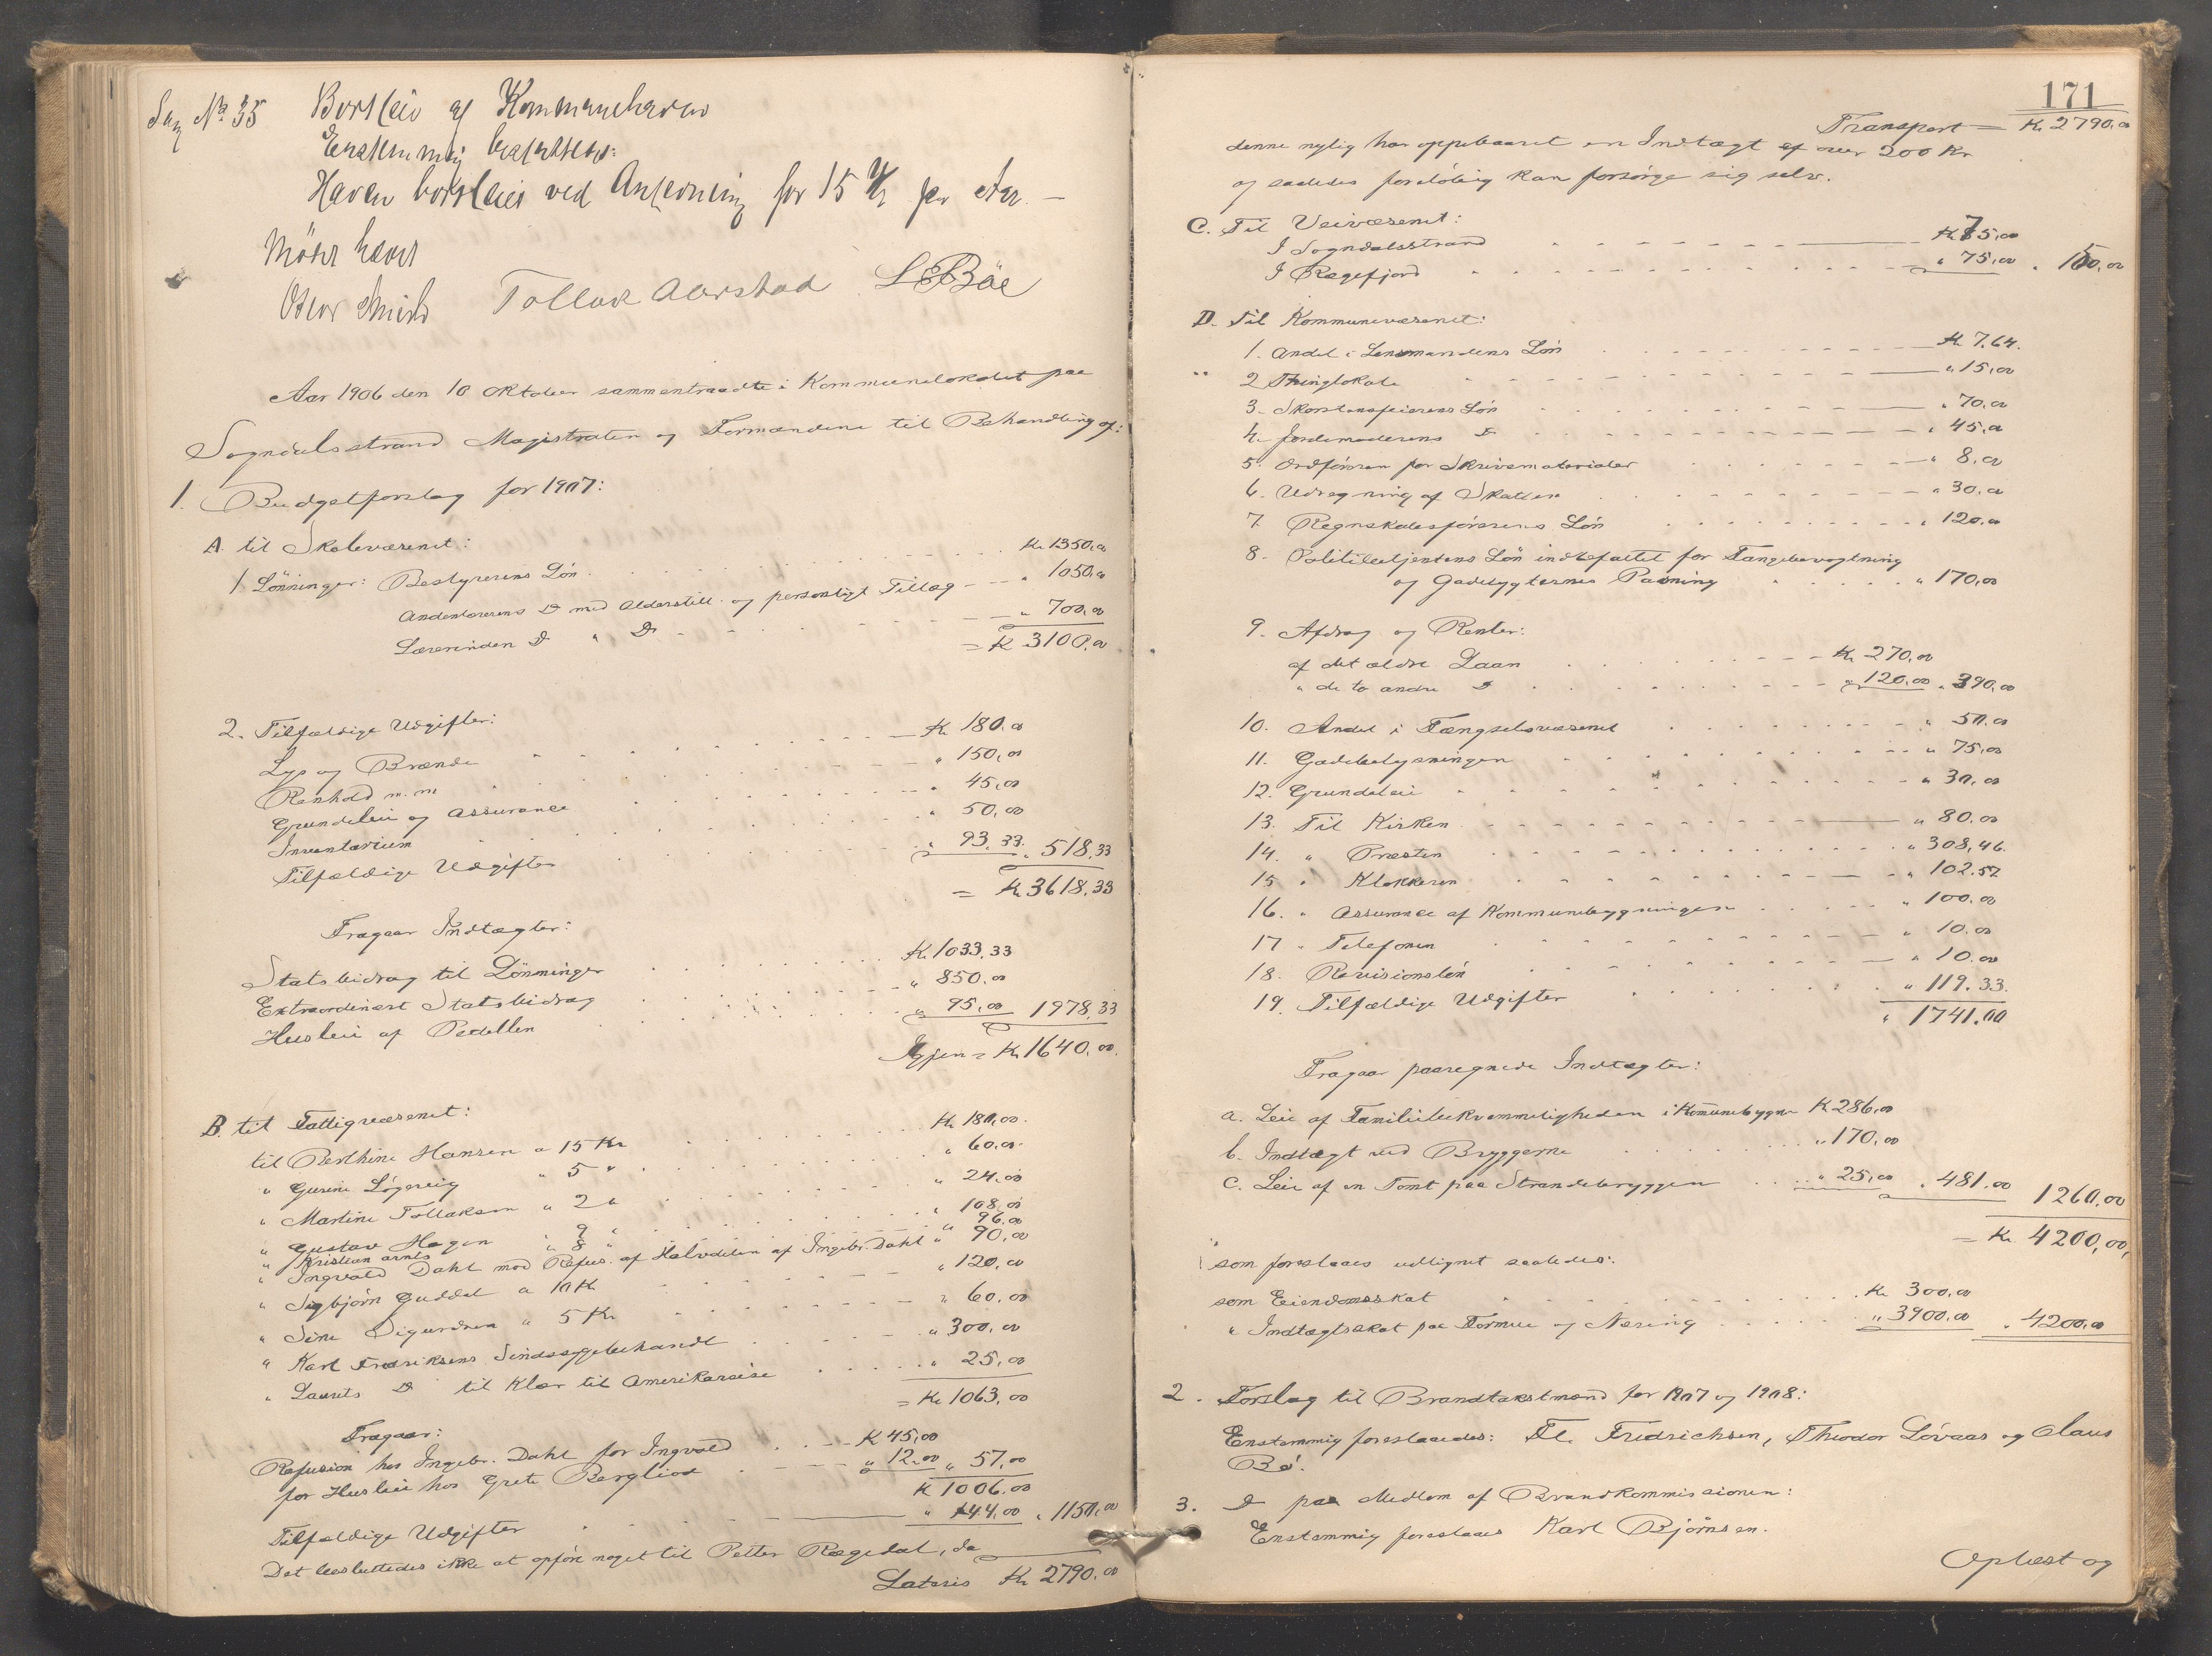 Sag No 35 Bortleie af Kommunehaven
Enstemmig besluttet:
Haven bortleies ved Anvisning for 15 Kr pr Aar. —
Oscar Smith Tollak Aarstad L E Böe
Aar 1906 den 10 Oktober sammentraadte i Kommunelokalet paa
Sogndalsstrand Magistraten og Formændene til Behandling af:
1. Budgetforslag for 1907:
A. til Skolevæsenet:
1 Lönninger: Bestyrerens Lön . . . Kr 1350,00
Andenlærerens Do med Alderstill. og personligt Tillæg — — „ 1050,00
Lærerinden Do „ Do - - - „ 700,00
= Kr 3100,00
2. Tilfældige Udgifter:
Lys og Brænde - - - Kr 180,00
Renhold m. m. - - - „ 150,00
Grundeleie og Assurance . . . „ 45,00
Inventarium . . . „ 50,00
Tilfældige Udgifter . . . „ 93,33 „ 518,33
= Kr 3618,33
Fragaar Indtægter:
Statsbidrag til Lönninger . . . Kr 1033,33
Extraordinært Statsbidrag . . . „ 850,00
Husleie af Pedellen . . . „ 95,00 1978,33
Igjen = Kr 1640,00
B. til Fattigvæsenet:
til Berthine Hansen a 15 Kr . . . Kr 180,00
„ Gurine Lögereig „ 5 „ . . . „ 60,00
„ Martine Tollaksen „ 2 „ . . . „ 24,00
„ Gustav Hagen „ 9 „ . . . „ 108,00
„ Kristian Arnts „ 8 „ . . . „ 96,00
„ Ingvald Dahl mod Refus. af Halvdelen af Ingebr. Dahl „ 90,00
„ Sigbjörn Guddal a 10 Kr - - - „ 120,00
„ Sine Sigurdsen „ 5 Kr - - - „ 60,00
„ Karl Fredriksens Sindssygebehandl . . . „ 300,00
„ Laurits Do til Klær til Amerikareise . . . „ 25,00
= Kr 1063,00
Fragaar:
Refusion hos Ingebr. Dahl for Ingvald . . — Kr 45,00
for Husleie hos Grete Bergliod - - - „ 12,00 „ 57,00
Kr 1006,00
Tilfældige Udgifter . . . „ 144,00 „ 1150,00
Det besluttedes ikke at opföre noget til Petter Rægedal, da
Lateris Kr 2790,00
171
Transport = Kr 2790,00
denne nylig har oppebaaret en Indtægt af over 200 Kr
og saaledes foreløbig kan forsörge sig selv.
C. Til Veivæsenet:
I Sogndalsstrand - - - Kr 75,00
I Rægefjord - - - „ 75,00 „ 150,00
D. Til Kommunevæsenet:
1. Andel i Lensmandens Lön . . . Kr 7,64.
2 Thinglokale - - - „ 15,00
3. Skorstensfeierens Lön . . . „ 70,00
4. Jordemoderens Do - - - „ 45,00
5. Ordföreren for Skrivematerialer . . . „ 8,00
6. Udregning af Skatten . . . „ 30,00
7. Regnskabsförerens Lön . . . „ 120,00
8. Politibetjentens Lön indbefattet for Fangebevogtning
og Gadelygternes Pasning . . . „ 170,00
9. Afdrag og Renter:
af det ældre Laan . . . Kr 270,00
„ de to andre Do . . . „ 120,00 „ 390,00
10. Andel i Fængselsvæsenet . . . „ 50,00
11. Gadebelysningen . . . „ 75,00
12. Grundeleie . . . „ 30,00
13. Til Kirken - - - „ 80,00
14. „ Præsten . . . „ 308,46.
15 „ Klokkeren . . . „ 102.57
16. „ Assurance af Kommunebygningen . . . „ 100,00
17 „ Telefonen . . . „ 10,00
18. Revisionslön . . . „ 10,00
19. Tilfældige Udgifter . . . „ 119.33.
„ 1741,00
Fragaar paaregnede Indtægter:
a. Leie af Familiebekvemmeligheden i Komunebygn. Kr 286,00
b. Indtægt ved Bryggerne . . . „ 170,00
c. Leie af en Tomt paa Strandebryggen . . . „ 25,00 „ 481,00 1260,00
= Kr. 4200,00,
som foreslaaes udlignet saaledes:
som Eiendomsskat . . . Kr 300,00
„ Indtægtsskat paa Formue og Næring . . . „ 3900,00 „ 4200,00
2. Forslag til Brandtakstmænd for 1907 og 1908:
Enstemmig foreslaaedes: Fl. Fredrichsen, Theodor Lövaas og Claus
Bö.
3. Do paa Medlem af Brandkommissionen:
Enstemmig foreslaaes Karl Björnsen.
Oplæst og